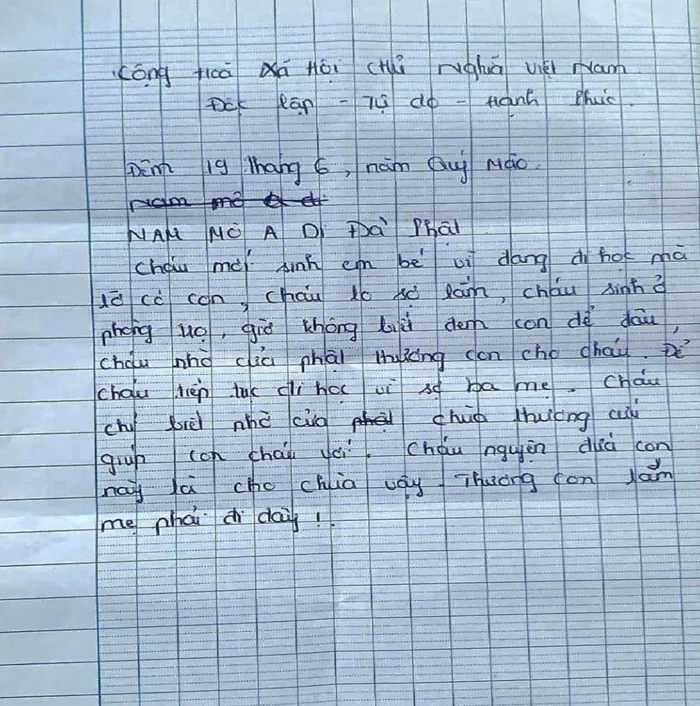 Cộng Hoà Xã Hội Chủ Nghĩa Việt Nam.
Độc lập - Tự do - Hạnh Phúc.
Đêm 19 tháng 6, năm Quý Mão.
Nam mô a di
NAM MÔ A DI ĐÀ PHẬT
Cháu mới sinh em bé vì đang đi học mà
lỡ có con, cháu lo sợ lắm, cháu sinh ở
phòng trọ, giờ không biết đem con để đâu,
cháu nhờ cửa phật thương con cho cháu. Để
cháu tiếp tục đi học vì sợ ba mẹ. Cháu
chỉ biết nhờ cửa phật chùa thương cứu
giúp con cháu với. Cháu nguyện đứa con
này là cho chùa vậy. Thương con lắm
mẹ phải đi đây!.